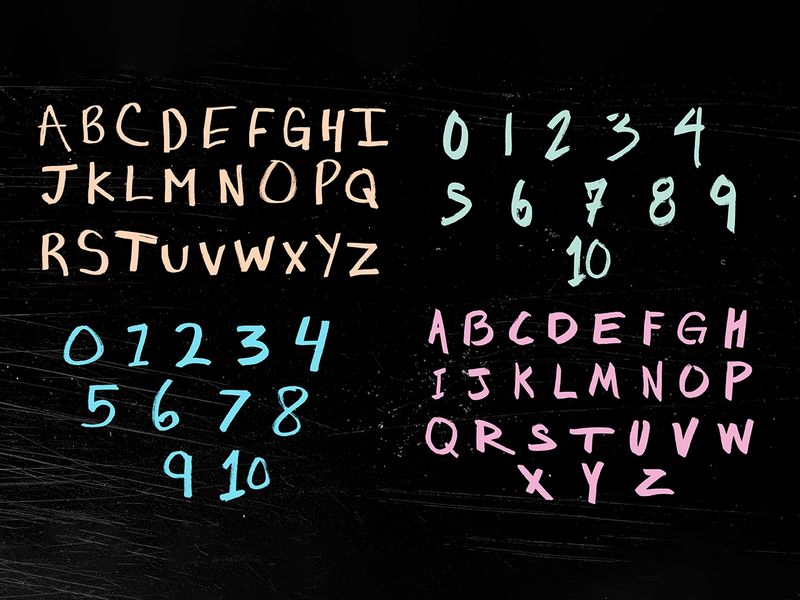 ABCDEFGHI
JKLMNOPQ
RSTUVWXYZ
0 1 2 3 4
5 6 7 8 9
10
0 1 2 3 4
5 6 7 8
9 10
ABCDEFGH
IJKLMNOP
QRSTUVW
XYZ